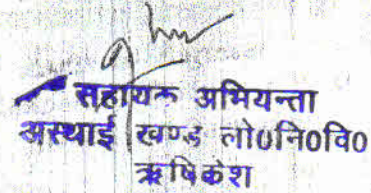 सहायक अभियन्ता
अस्थाई खण्ड लो0नि0वि0
ऋषिकेश